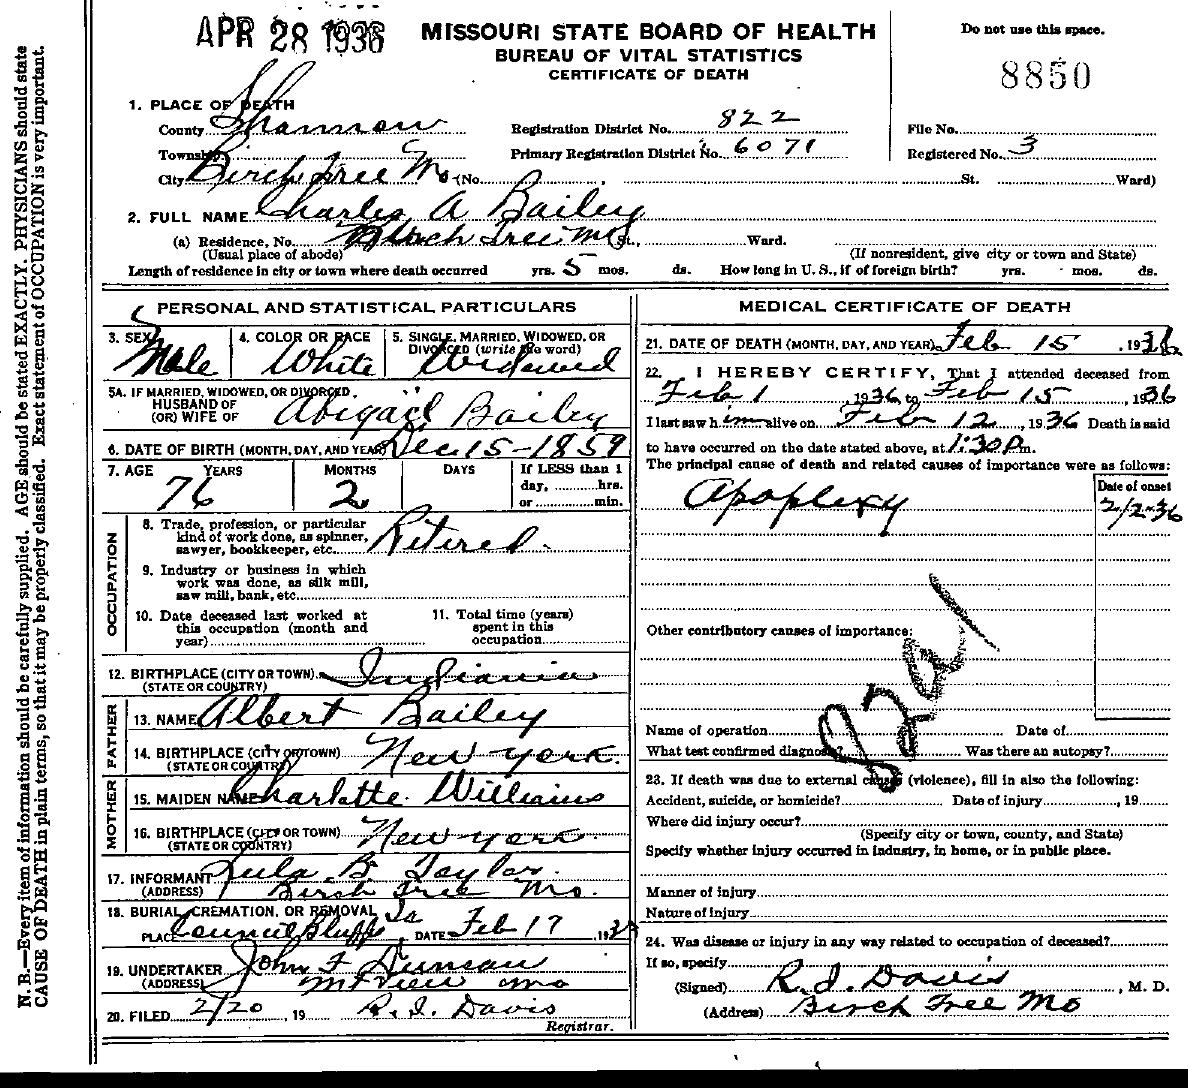 APR 28 1936
MISSOURI STATE BOARD OF HEALTH
BUREAU OF VITAL STATISTICS
CERTIFICATE OF DEATH
Do not use this space.
8850
1. PLACE OF DEATH
County Shannon Registration District No. 822 File No.
Township Primary Registration District No. 6071 Registered No. 3
City Birch Tree Mo (No. , St. Ward)
2. FULL NAME Charles A Bailey
(a) Residence, No. Birch Tree Mo St., Ward.
(Usual place of abode) (If nonresident, give city or town and State)
Length of residence in city or town where death occurred yrs. 5 mos. ds. How long in U. S., if of foreign birth? yrs. mos. ds.
PERSONAL AND STATISTICAL PARTICULARS
3. SEX Male 4. COLOR OR RACE White 5. SINGLE, MARRIED, WIDOWED, OR DIVORCED (write the word) Widowed
5A. IF MARRIED, WIDOWED, OR DIVORCED
HUSBAND OF
(OR) WIFE OF Abigail Bailey
6. DATE OF BIRTH (MONTH, DAY, AND YEAR) Dec. 15-1859
7. AGE YEARS MONTHS DAYS If LESS than 1
day, hrs.
or min.
76 2
OCCUPATION
8. Trade, profession, or particular
kind of work done, as spinner,
sawyer, bookkeeper, etc. Retired.
9. Industry or business in which
work was done, as silk mill,
saw mill, bank, etc.
10. Date deceased last worked at
this occupation (month and
year)
11. Total time (years)
spent in this
occupation
12. BIRTHPLACE (CITY OR TOWN) Indiania
(STATE OR COUNTRY)
FATHER
13. NAME Albert Bailey
14. BIRTHPLACE (CITY OR TOWN) New York.
(STATE OR COUNTRY)
MOTHER
15. MAIDEN NAME Charlotte Williams
16. BIRTHPLACE (CITY OR TOWN) New York.
(STATE OR COUNTRY)
17. INFORMANT Lula B Taylor
(ADDRESS) Birch Tree Mo.
18. BURIAL, CREMATION, OR REMOVAL Ia
PLACE Council Bluffs DATE Feb 17 , 193
19. UNDERTAKER John F Duncan
(ADDRESS) Mt View Mo
20. FILED 2/20 , 19 R. I. Davis
Registrar.
MEDICAL CERTIFICATE OF DEATH
21. DATE OF DEATH (MONTH, DAY, AND YEAR) Feb 15 , 1936
22. I HEREBY CERTIFY, That I attended deceased from
Feb 1 , 1936 to Feb 15 , 1936
I last saw him alive on Feb 12 , 1936 Death is said
to have occurred on the date stated above, at 1:30 P m.
The principal cause of death and related causes of importance were as follows:
Date of onset
Apoplexy 2/12-36
Other contributory causes of importance:
82a1
Name of operation Date of
What test confirmed diagnosis? Was there an autopsy?
23. If death was due to external causes (violence), fill in also the following:
Accident, suicide, or homicide? Date of injury , 19
Where did injury occur?
(Specify city or town, county, and State)
Specify whether injury occurred in industry, in home, or in public place.
Manner of injury
Nature of injury
24. Was disease or injury in any way related to occupation of deceased?
If so, specify
(Signed) R. I. Davis , M. D.
(Address) Birch Tree Mo
N. B.—Every item of information should be carefully supplied. AGE should be stated EXACTLY. PHYSICIANS should state
CAUSE OF DEATH in plain terms, so that it may be properly classified. Exact statement of OCCUPATION is very important.